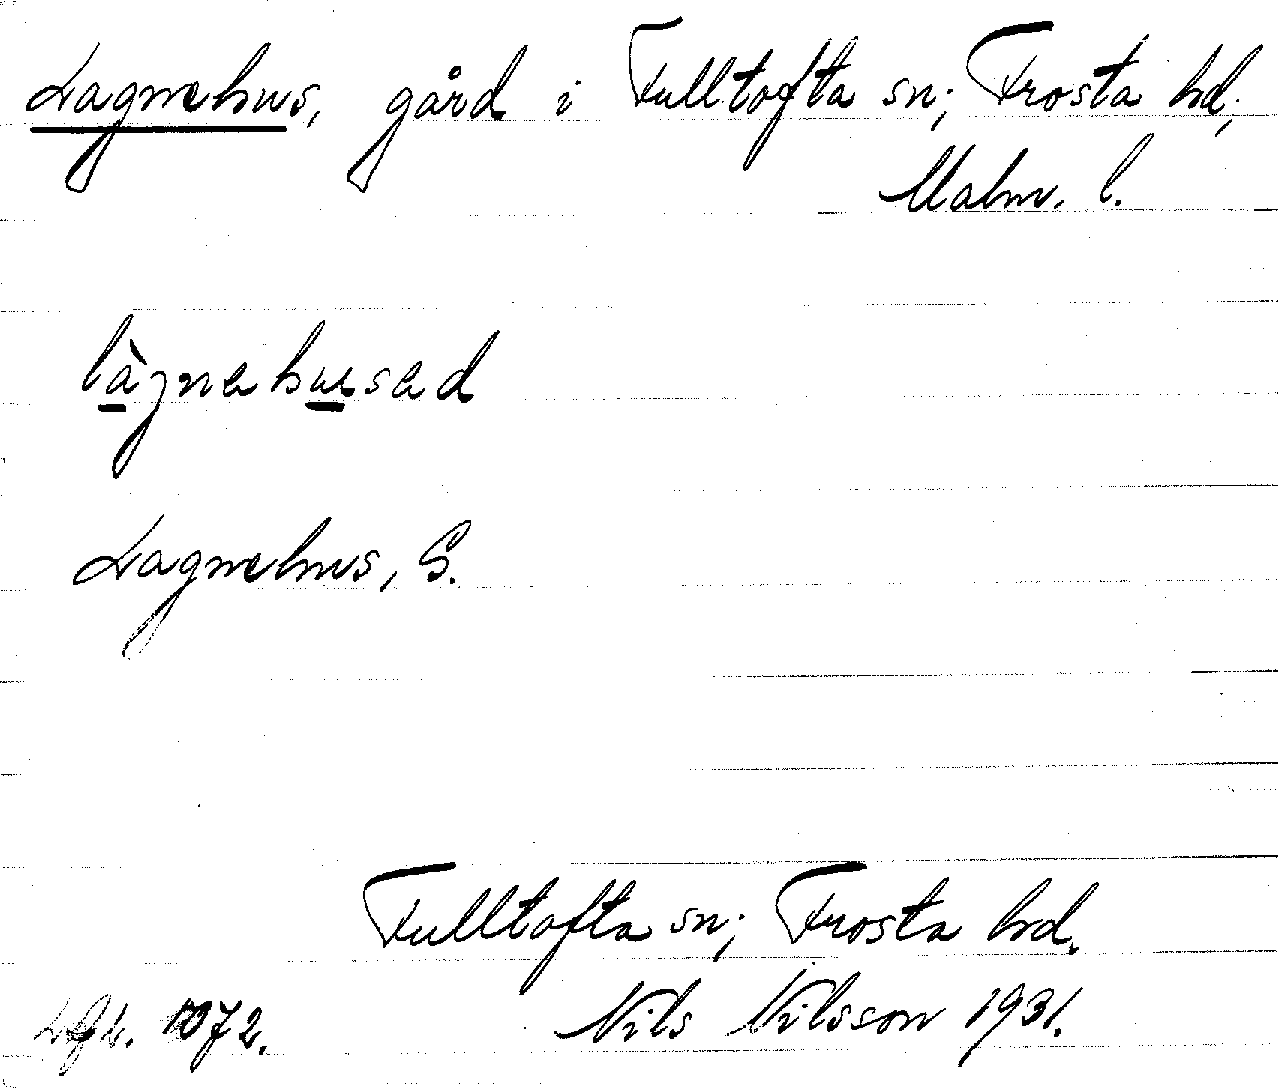 Lagnehus, gård i Fulltofta sn; Frosta hd;
Malm. l.
làgnehused
Lagnehus, G.
Fulltofta sn; Frosta hd.
1072.
Nils Nilsson 1931.